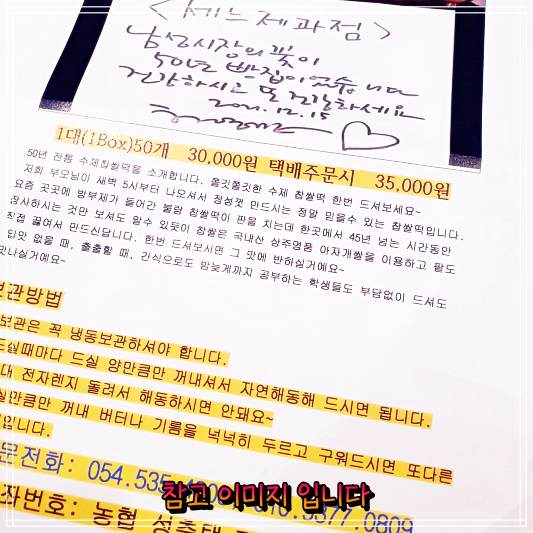 <세느제과점>
남성시장의 꽃이
50년 빵집이 였습니다
건강하시고 또 건강하세요
2021.12.15
1대(1Box)50개 30,000원 택배주문시 35,000원
50년 전통 수제찹쌀떡을 소개합니다. 쫄깃쫄깃한 수제 찹쌀떡 한번 드셔보세요~
저희 부모님이 새벽 5시부터 나오셔서 정성껏 만드시는 정말 믿을수 있는 찹쌀떡입니다.
요즘 곳곳에 방부제가 들어간 불량 찹쌀떡이 판을 치는데 한곳에서 45년 넘는 시간동안
장사하시는 것만 보셔도 알수 있듯이 찹쌀은 국내산 상주명품 아자개쌀을 이용하고 팥도
직접 끓여서 만드신답니다. 한번 드셔보시면 그 맛에 반하실거예요~
입맛 없을 때, 출출할 때, 간식으로도 밤늦게까지 공부하는 학생들도 부담없이 드셔도
맛나실거예요~
보관방법
보관은 꼭 냉동보관하셔야 합니다.
드실때마다 드실 양만큼만 꺼내셔서 자연해동해 드시면 됩니다.
대 전자렌지 돌려서 해동하시면 안돼요~
실만큼만 꺼내 버터나 기름을 넉넉히 두르고 구워드시면 또다른
입니다.
문전화: 054.535 3377.0809
좌번호: 농협
참고 이미지 입니다